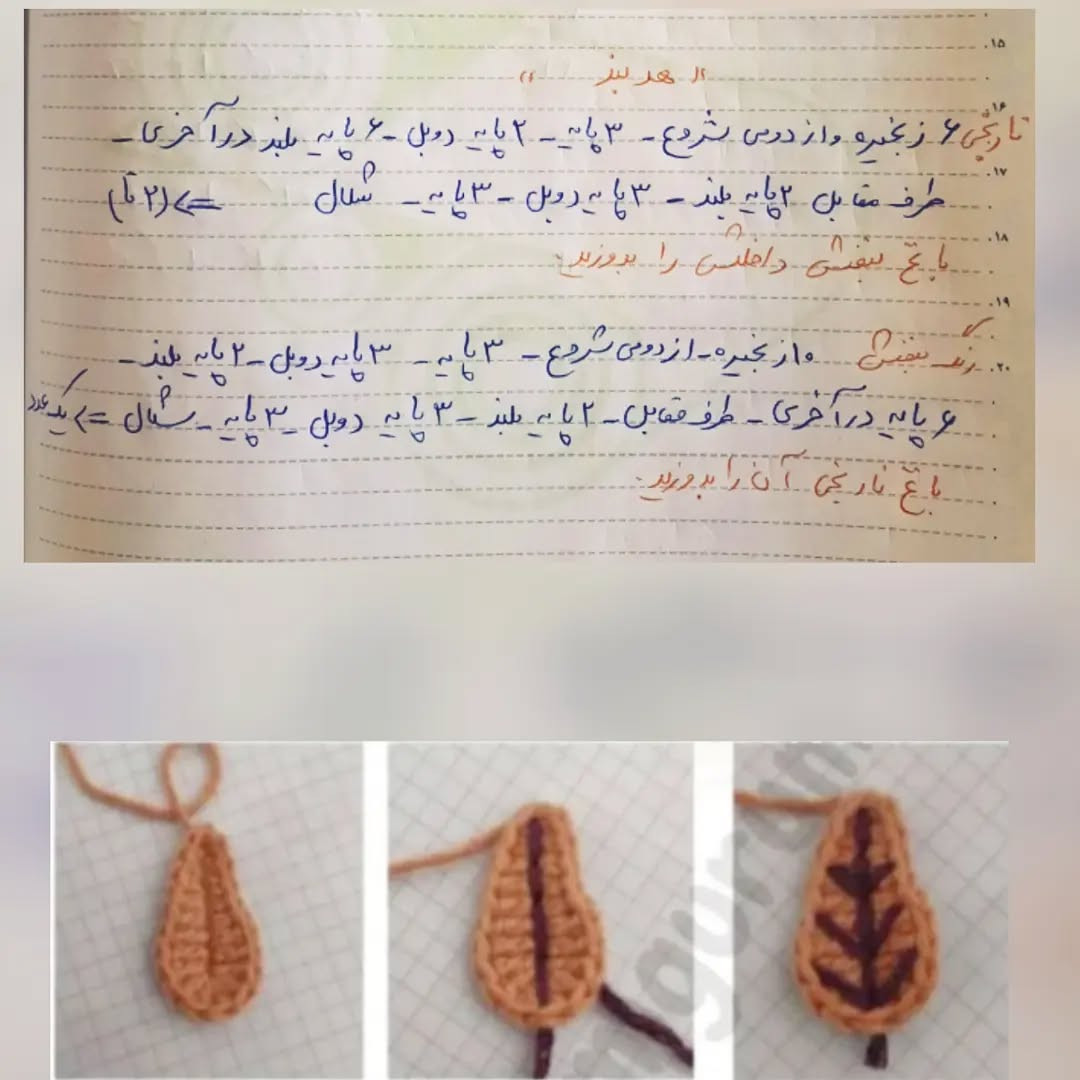 ۱۵
" هد بند "
۱۶
نارنجی ۶ زنجیره و از دومی شروع - ۳ پایه - ۲ پایه دوبل - ۶ پایه بلند در آخری -
۱۷
طرف مقابل ۲ پایه بلند - ۳ پایه دوبل - ۳ پایه - شلال => (۲ تا)
۱۸
با نخ بنفش داخلش را بدوزید.
۱۹
رنگ بنفش ۱۰ زنجیره - از دومی شروع - ۳ پایه - ۳ پایه دوبل - ۲ پایه بلند -
۲۰
۶ پایه در آخری - طرف مقابل - ۲ پایه بلند - ۳ پایه دوبل - ۳ پایه - شلال => یک عدد
با نخ نارنجی آن را بدوزید.
gurum